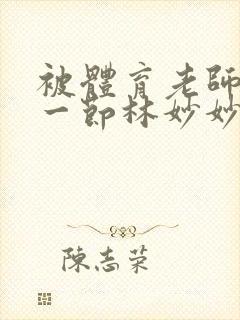 被體育老師
一節林妙妙
陳志榮